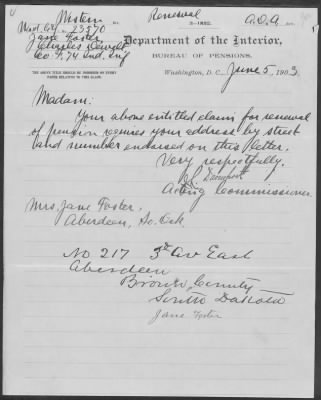 Western Div. Renewal A.O.A.
3-1052.
Wid. Ctf. 23570
Jane Foster
Charles Dewight
Co. F, 74 Ind. Inf
Department of the Interior,
BUREAU OF PENSIONS,
THE ABOVE TITLE SHOULD BE INDORSED ON EVERY
PAPER RELATING TO THIS CLAIM.
Washington, D. C., June 5, 1903
Madam:
Your above entitled claim for renewal
of pension requires your address by street
and number endorsed on this letter.
Very respectfully,
Davenport
Acting Commissioner.
Mrs. Jane Foster,
Aberdeen, So. Dak
No 217 5th Av East
Aberdeen
Brown County
South Dakota
Jane Foster